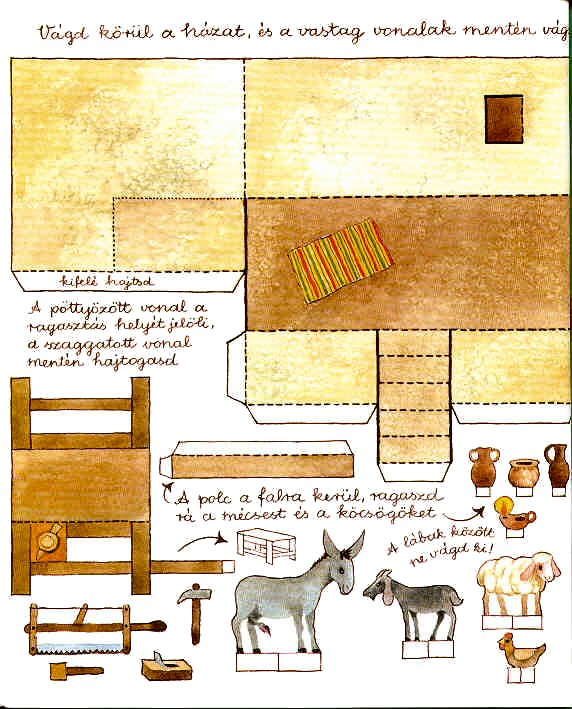 Vágd körül a házat, és a vastag vonalak mentén vág
kifelé hajtsd
A pöttyözött vonal a
ragasztás helyét jelöli,
a szaggatott vonal
mentén hajtogasd
A polc a falra kerül, ragaszd
rá a mécsest és a köcsögöket
A lábak között
ne vágd ki!